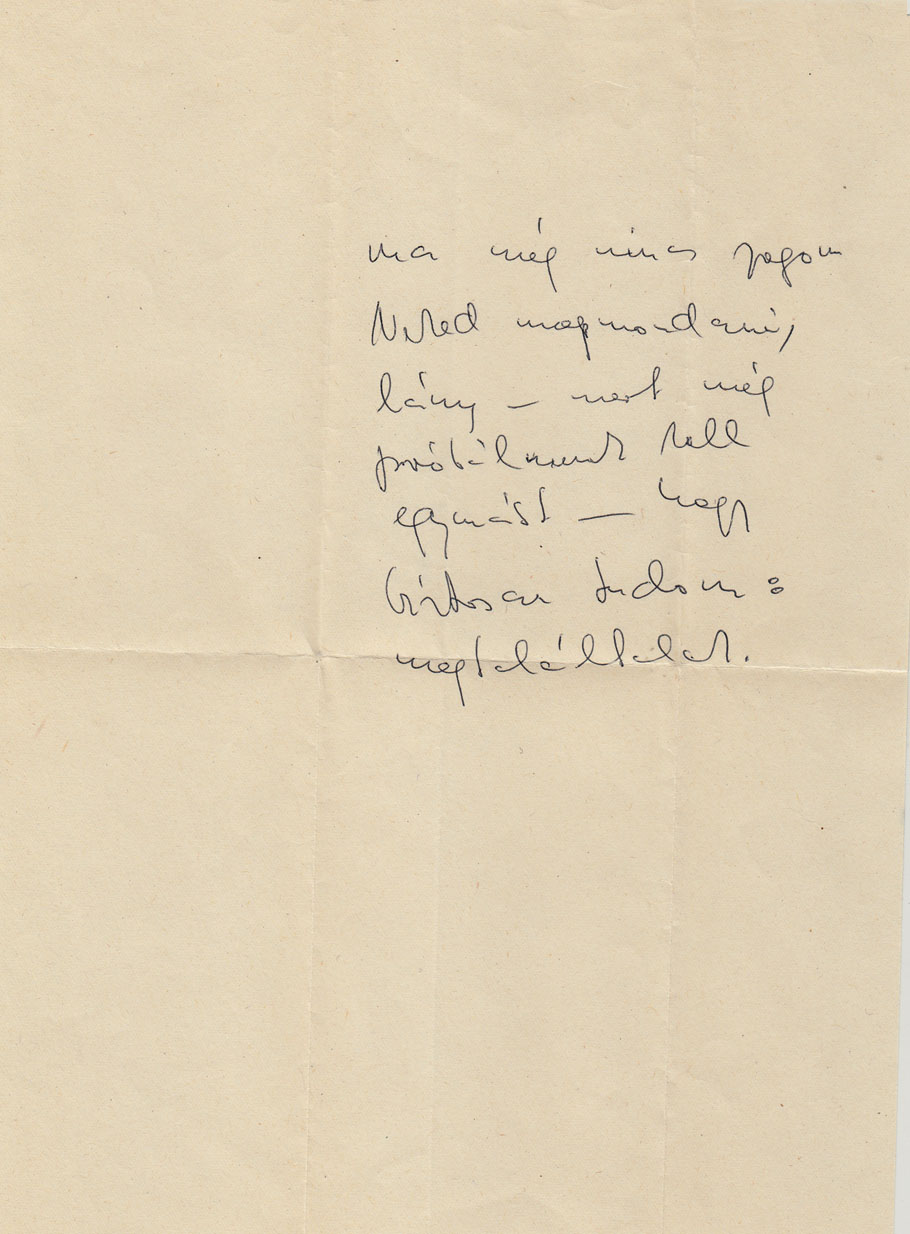 ma még nincs jogom
Neked megmondani,
lány – mert még
próbálnunk kell
egymást – hogy
biztosan tudom:
megtaláltalak.